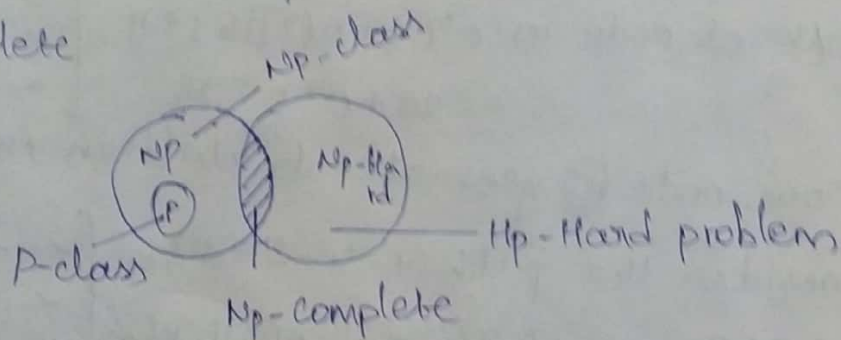 lete
Np-class
NP
Np-Ha
rd
P
Hp-Hard problem
P-class
Np-complete